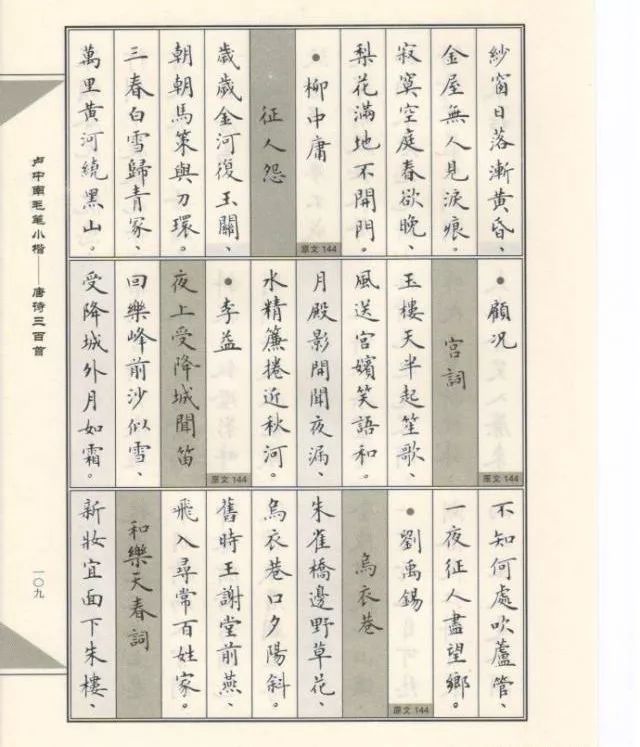 紗窗日落漸黃昏、
金屋無人見淚痕。
寂寞空庭春欲晚、
梨花滿地不開門。
•柳中庸
原文144
征人怨
歲歲金河復玉關、
朝朝馬策與刀環。
三春白雪歸青冢、
萬里黃河繞黑山。
•顧況
原文144
宮詞
玉樓天半起笙歌、
風送宮嬪笑語和。
月殿影開聞夜漏、
水精簾捲近秋河。
•李益
原文144
夜上受降城聞笛
回樂峰前沙似雪、
受降城外月如霜。
不知何處吹蘆管、
一夜征人盡望鄉。
•劉禹錫
原文144
烏衣巷
朱雀橋邊野草花、
烏衣巷口夕陽斜。
舊時王謝堂前燕、
飛入尋常百姓家。
和樂天春詞
新妝宜面下朱樓、
卢中南毛笔小楷——唐诗三百首
一〇九